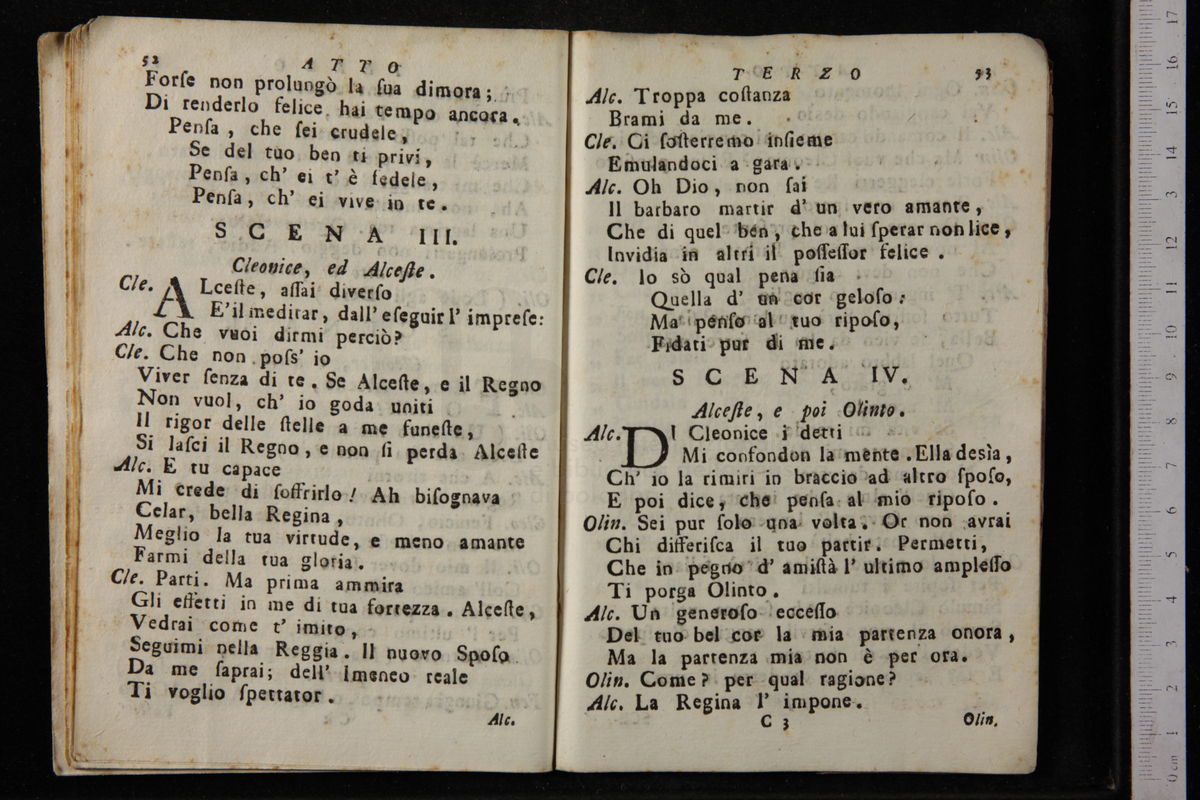 52 ATTO
Forſe non prolungò la ſua dimora;
Di renderlo felice hai tempo ancora.
Penſa, che ſei crudele,
Se del tuo ben ti privi,
Penſa, ch' ei t' è fedele,
Penſa, ch' ei vive in te.
SCENA III.
Cleonice, ed Alceſte.
Cle. ALceſte, aſſai diverſo
E' il meditar, dall' eſeguir l' impreſe:
Alc. Che vuoi dirmi perciò?
Cle. Che non poſs' io
Viver ſenza di te. Se Alceſte, e il Regno
Non vuol, ch' io goda uniti
Il rigor delle ſtelle a me funeſte,
Si laſci il Regno, e non ſi perda Alceſte
Alc. E tu capace
Mi crede di ſoffrirlo! Ah biſognava
Celar, bella Regina,
Meglio la tua virtude, e meno amante
Farmi della tua gloria.
Cle. Parti. Ma prima ammira
Gli effetti in me di tua fortezza. Alceſte,
Vedrai come t' imito,
Seguimi nella Reggia. Il nuovo Spoſo
Da me ſaprai; dell' Imeneo reale
Ti voglio ſpettator.
Alc.
TERZO 53
Alc. Troppa coſtanza
Brami da me.
Cle. Ci ſoſterremo inſieme
Emulandoci a gara.
Alc. Oh Dio, non ſai
Il barbaro martir d' un vero amante,
Che di quel ben, che a lui ſperar non lice,
Invidia in altri il poſſeſſor felice.
Cle. Io sò qual pena ſia
Quella d' un cor geloſo:
Ma penſo al tuo ripoſo,
Fidati pur di me.
SCENA IV.
Alceſte, e poi Olinto.
Alc. DI Cleonice i detti
Mi confondon la mente. Ella desìa,
Ch' io la rimiri in braccio ad altro ſpoſo,
E poi dice, che penſa al mio ripoſo.
Olin. Sei pur ſolo una volta. Or non avrai
Chi differiſca il tuo partir. Permetti,
Che in pegno d' amiſtà l' ultimo ampleſſo
Ti porga Olinto.
Alc. Un generoſo ecceſſo
Del tuo bel cor la mia partenza onora,
Ma la partenza mia non è per ora.
Olin. Come? per qual ragione?
Alc. La Regina l' impone.
C 3 Olin.
0 cm 1 2 3 4 5 6 7 8 9 10 11 12 13 14 15 16 17